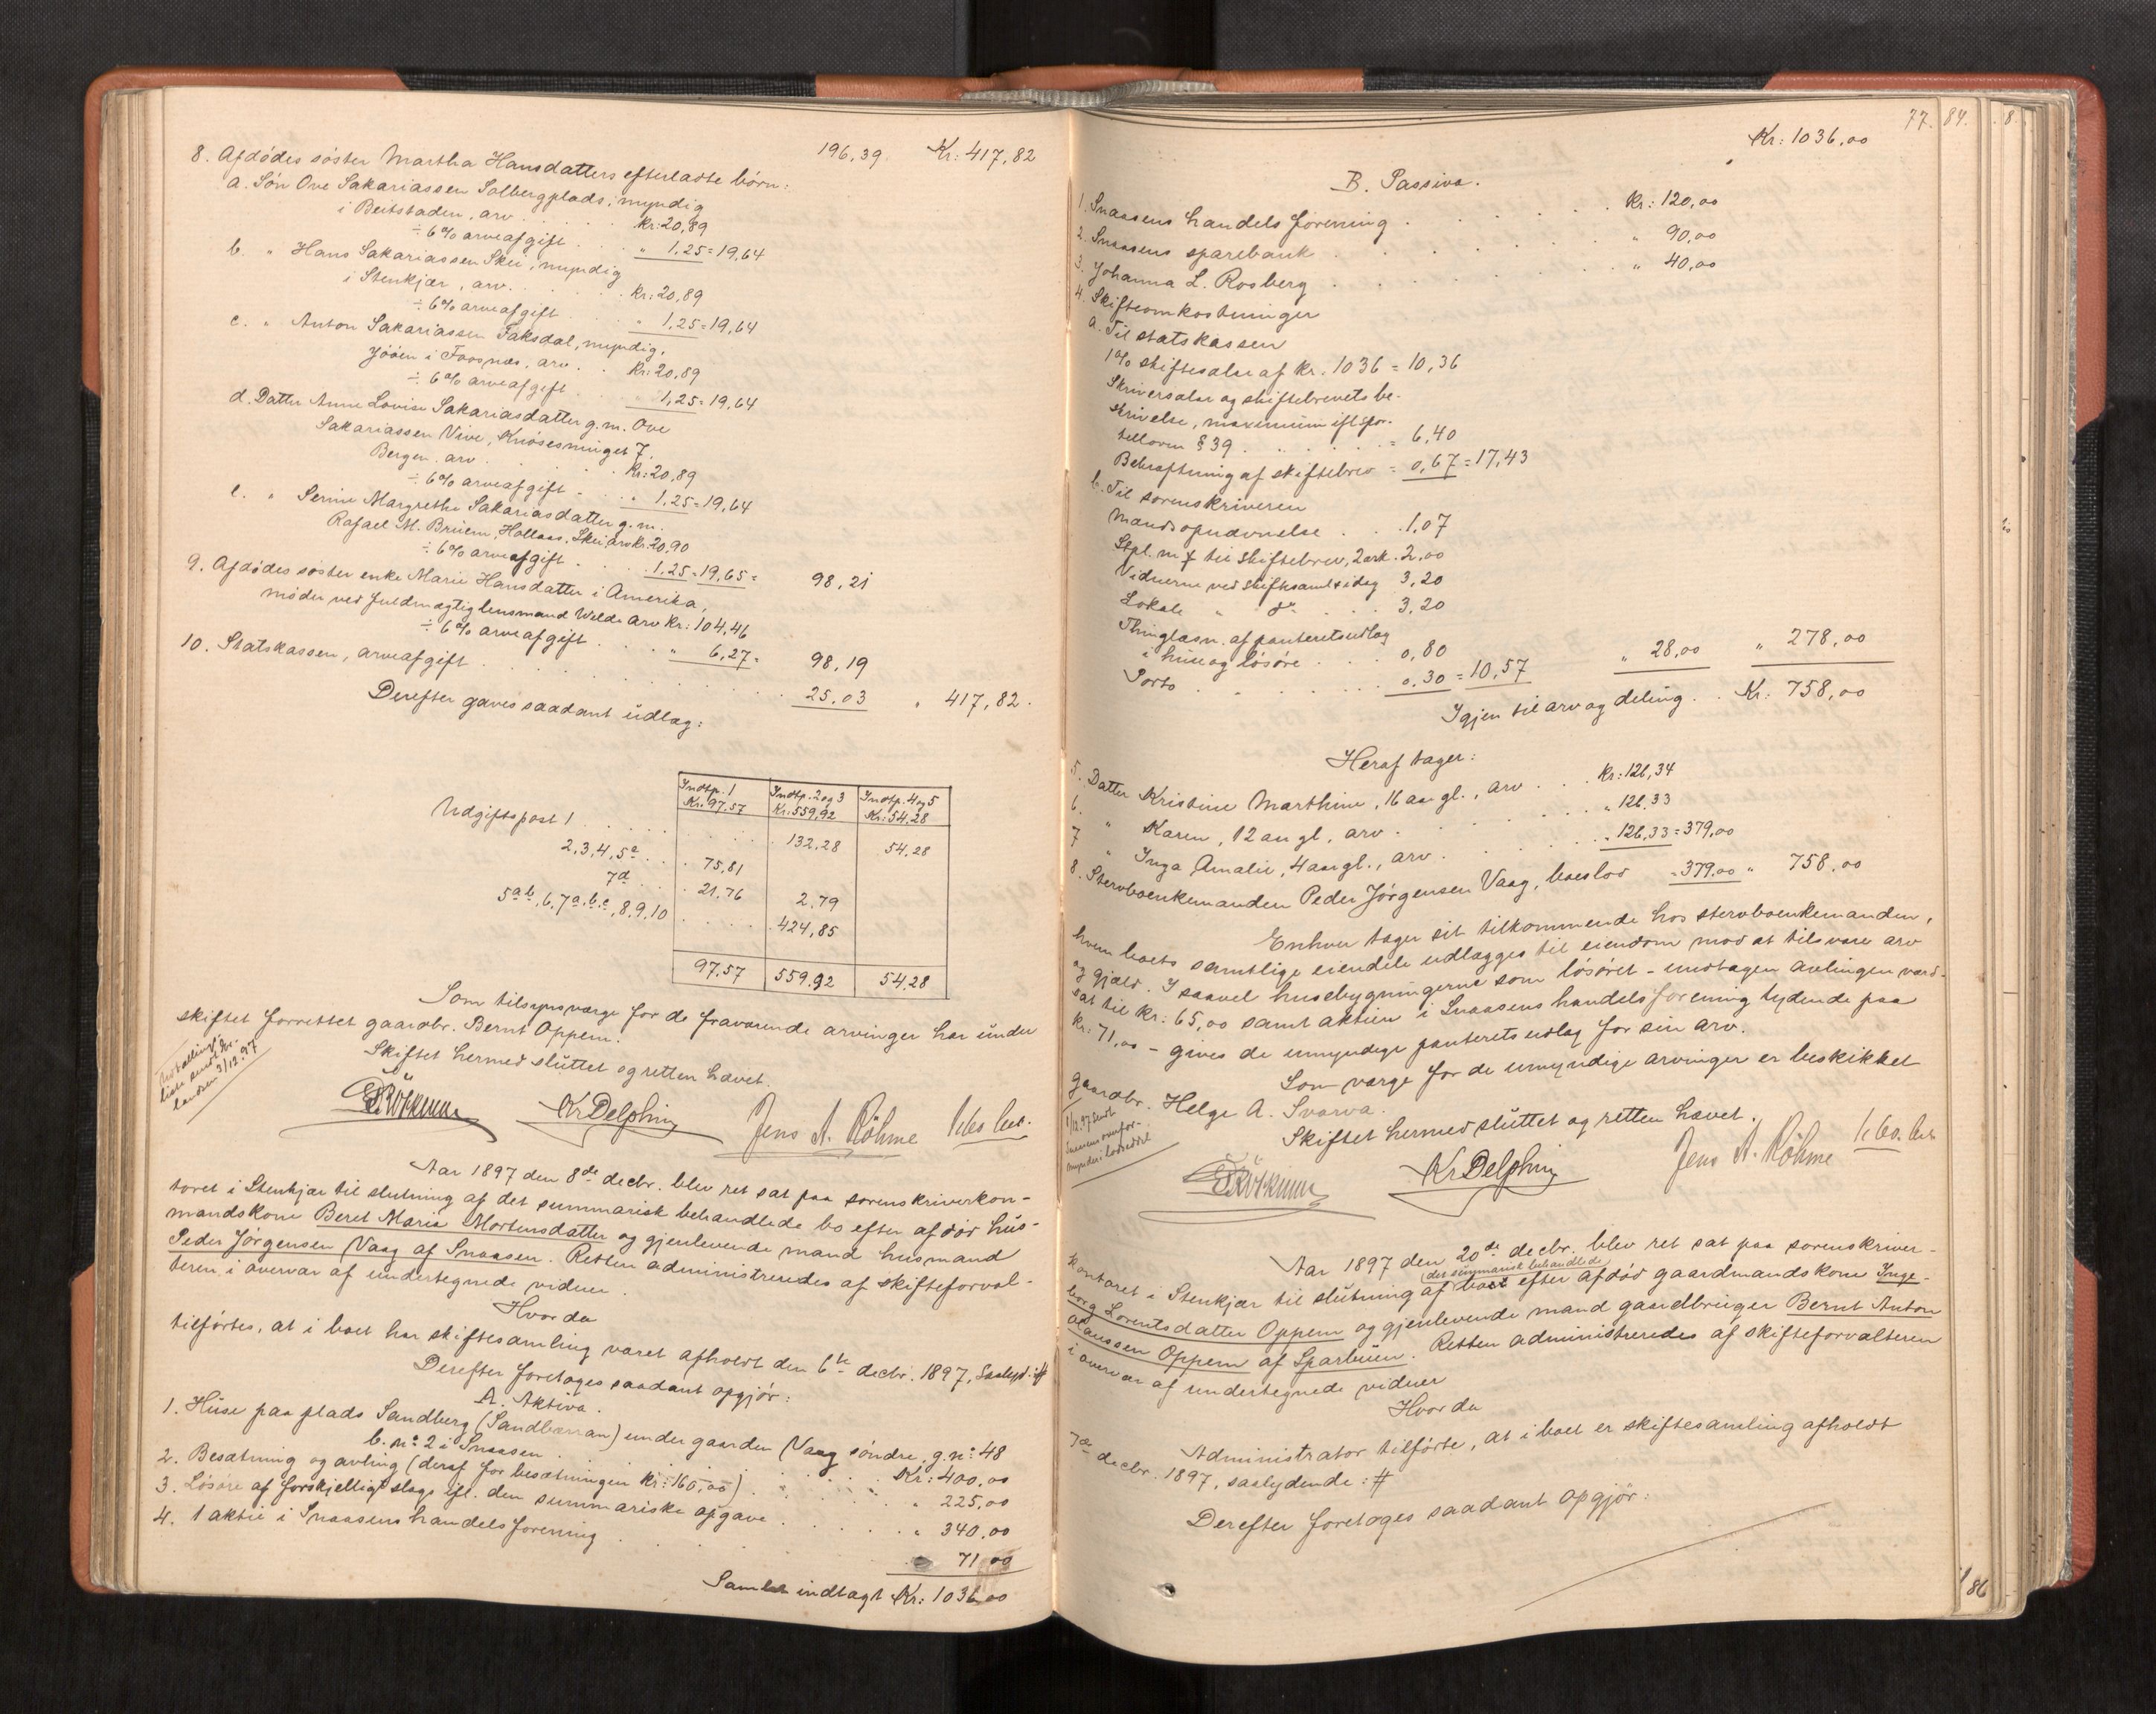 196,39. Kr: 417,82
8. Afdødes søster Martha Hansdatters efterladte børn:
a. Søn Ove Sakariassen Solbergplads, myndig
i Beitstaden, arv . . . . Kr: 20,89
÷ 6% arveafgift . . . „ 1,25 = 19,64
b. „ Hans Sakariassen Skei, myndig
i Stenkjær, arv . . . . Kr: 20,89
÷ 6% arveafgift . . „ 1,25 = 19,64
c. „ Anton Sakariassen Faksdal, myndig,
Jøøen i Fosnæs, arv . . Kr: 20,89
÷ 6% arveafgift . . . 1,25 = 19,64
d. Datter Anne Lovise Sakariasdatter g. m. Ove
Sakariassen Vive, Knøsesminget 7.
Bergen, arv . . . . Kr: 20,89
÷ 6% arveafgift . . „ 1,25 = 19,64
e. „ Serine Margrethe Sakariasdatter g. m.
Rafael M. Bruem, Hollaas, Skei, arv Kr. 20,90
÷ 6% arveafgift . . . 1,25 = 19,65 = 98,21
9. Afdødes søster enke Marie Hansdatter i Amerika,
møder ved fuldmægtig lensmand Welde arv Kr: 104,46
÷ 6% arveafgift . . . „ 6,27 = 98,19
10. Statskassen, arveafgift . . . . 25,03 „ 417,82.
Derefter gaves saadant udlæg:
Indtp. 1 Indtp. 2 og 3 Indtp. 4 og 5
Kr: 97,57 Kr: 559,92 Kr: 54,28
Udgiftspost 1 . . . . 132,28 54,28
2, 3, 4, 5a . . . 75,81
7d . . . 21,76 2,79
5a b, 6, 7a, b, c, 8, 9, 10 . . . . 424,85
97,57 559,92 54,28
Som tilsynsværge for de fraværende arvinger har under
skiftet forrettet gaardbr. Bernt Oppem.
Skiftet hermed sluttet og retten hævet.
3/12.97
Kr Delphin Jens A. Röhme
Aar 1897 den 8de decbr. blev ret sat paa sorenskriverkon-
toret i Stenkjær til slutning af det summarisk behandlede bo efter afdød hus-
mandskone Beret Maria Mortensdatter og gjenlevende mand husmand
Peder Jørgensen Vaag af Snaasen. Retten administreredes af skifteforval-
teren i overvær af undertegnede vidner.
Hvorda
tilførtes, at i boet har skiftesamling været afholdt den 6te decbr. 1897, saalyd: #
Derefter foretoges saadant opgjør:
A. Aktiva.
1. Huse paa plads Sandberg (Sandbærran) under gaarden Vaag søndre, g. no: 48
b. no: 2 i Snaasen . . . . Kr: 400,00
2. Besætning og avling (deraf for besætningen Kr: 160,00) . . „ 225,00
3. Løsøre af forskjelligt slags ifl. den summariske opgave . . „ 340,00
4. 1 aktie i Snaasens handelsforening . . . 71,00
Samlet indtægt Kr: 1036,00
77. 84. 8.
Kr: 1036,00
B. Passiva.
1. Snaasens handelsforening . . . . Kr: 120,00
2. Snaasens sparebank . . . . „ 90,00
3. Johanna L. Rosberg . . . . „ 40,00
4. Skifteomkostninger
a. Til statskassen
1% skiftesalær af Kr. 1036 = 10,36
Skriversalær og skiftebrevets be-
skrivelse, maximum ifl. spor-
telloven § 39 . . . . = 6,40
Bekræftning af skiftebrev = 0,67 = 17,43
b. Til sorenskriveren
Mandsopnævnelse . . 1,07
Stpl. m f til skiftebrev, 2 ark. 2,00
Vidnerne ved skiftesaml. & idag 3,20
Lokale „ do . . . 3,20
Thinglæsn. af panteretsudlæg
i huse og løsøre . . . 0,80
Porto . . . . . 0,30 = 10,57 „ 28,00 „ 278,00
Igjen til arv og deling . . Kr: 758,00
Heraf tager:
5. Datter Kristine Marthine, 16 aar gl., arv . . Kr: 126,34
6. „ Karen, 12 aar gl, arv . . . . „ 126,33
7 „ Inga Amalie, 4 aar gl., arv . . . . „ 126,33 = 379,00
8. Stervboenkemanden Peder Jørgensen Vaag, boeslod = 379,00 „ 758,00
Enhver tager sit tilkommende hos stervboenkemanden,
hvem boets samtlige eiendele udlægges til eiendom mod at tilsvare arv
og gjæld. I saavel husebygningerne som løsøret – undtagen avlingen værd-
sat til Kr: 65,00 samt aktien i Snaasens handelsforening lydende paa
Kr: 71,00 – gives de umyndige panteretsudlæg for sin arv.
Som værge for de umyndige arvinger er beskikket
gaardbr. Helge A. Svarva.
Skiftet hermed sluttet og retten hævet.
Kr Delphin Jens A. Röhme
Aar 1897 den 20de decbr. blev ret sat paa sorenskriver-
kontoret i Stenkjær til slutning af det summarisk behandlede boet efter afdød gaardmandskone Inge-
borg Lorentsdatter Oppem og gjenlevende mand gaardbruger Bernt Anton
Olaussen Oppem af Sparbuen. Retten administreredes af skifteforvalteren
i overvær af undertegnede vidner
Hvorda
Administrator tilførte, at i boet er skiftesamling afholdt
7de decbr. 1897, saalydende: #
Derefter foretoges saadant opgjør:
86